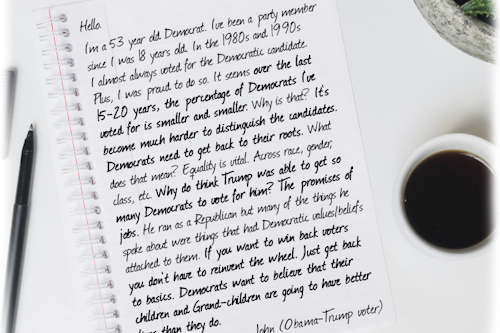 Hello.
I'm a 53 year old Democrat. I've been a party member
since I was 18 years old. In the 1980s and 1990s
I almost always voted for the Democratic candidate.
Plus, I was proud to do so. It seems over the last
15-20 years, the percentage of Democrats I've
voted for is smaller and smaller. Why is that? It's
become much harder to distinguish the candidates.
Democrats need to get back to their roots. What
does that mean? Equality is vital. Across race, gender,
class, etc. Why do think Trump was able to get so
many Democrats to vote for him? The promises of
jobs. He ran as a Republican but many of the things he
spoke about were things that had Democratic values/beliefs
attached to them. If you want to win back voters
you don't have to reinvent the wheel. Just get back
to basics. Democrats want to believe that their
children and Grand-children are going to have better
than they do.
John (Obama-Trump voter)